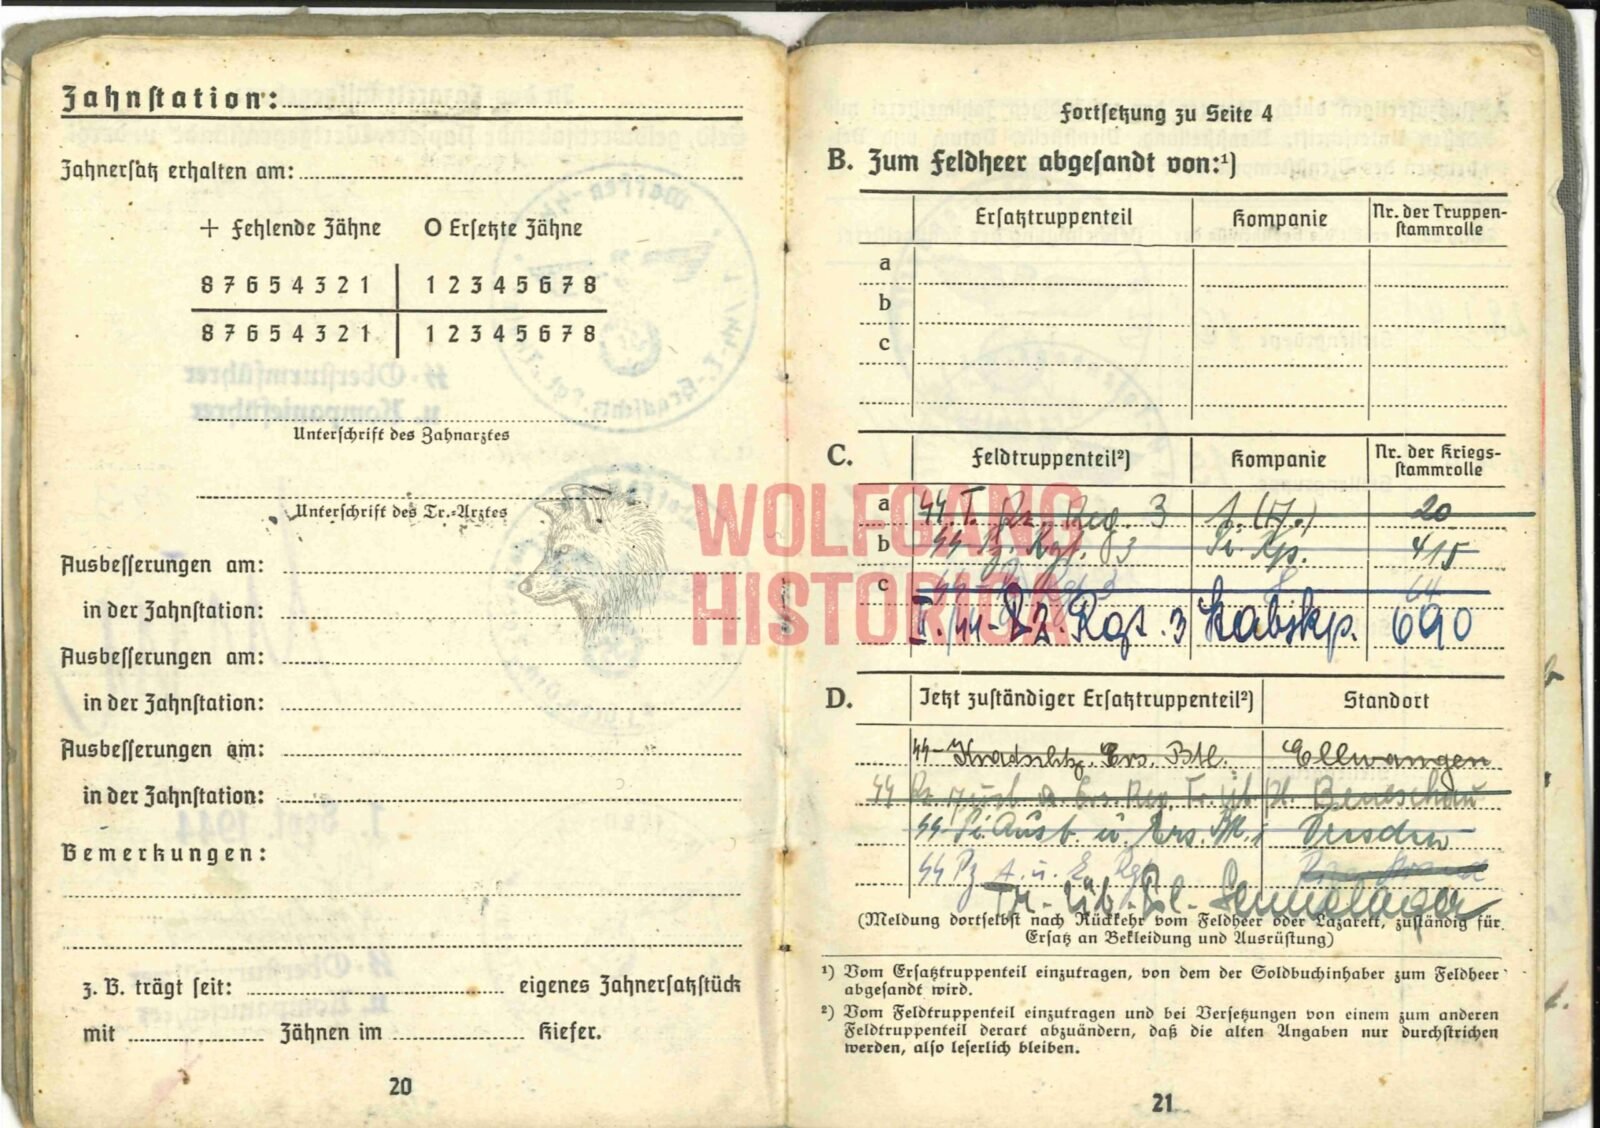 Zahnstation:
Zahnersatz erhalten am:
+ Fehlende Zähne O Ersetzte Zähne
8 7 6 5 4 3 2 1 1 2 3 4 5 6 7 8
8 7 6 5 4 3 2 1 1 2 3 4 5 6 7 8
Unterschrift des Zahnarztes
Unterschrift des Tr.-Arztes
Ausbesserungen am:
in der Zahnstation:
Ausbesserungen am:
in der Zahnstation:
Ausbesserungen am:
in der Zahnstation:
Bemerkungen:
z. B. trägt seit: eigenes Zahnersatzstück
mit Zähnen im Kiefer.
20
WOLFGANG
HISTORICA
Fortsetzung zu Seite 4
B. Zum Feldheer abgesandt von:¹)
Ersatztruppenteil Kompanie Nr. der Truppen-
stammrolle
a
b
c
C. Feldtruppenteil²) Kompanie Nr. der Kriegs-
stammrolle
a SS T. Pz. Reg. 3 20
b SS-Pz. Rgt. 3 Pi. Kp. 415
c Rgt 3 64
II./SS-Pz. Rgt. 3 Stabskp. 690
D. Jetzt zuständiger Ersatztruppenteil²) Standort
SS-Kradschtz. Ers. Btl. Ellwangen
SS Pz Ausb. u. Ers. Reg. Tr. Üb. Pl. Beneschau
SS-Pi. Ausb. u. Ers. Btl. 1 Dresden
SS Pz A. u. E. Rgt
Tr.-Üb.-Pl.-Sennelager
(Meldung dortselbst nach Rückkehr vom Feldheer oder Lazarett, zuständig für
Ersatz an Bekleidung und Ausrüstung)
¹) Vom Ersatztruppenteil einzutragen, von dem der Soldbuchinhaber zum Feldheer
abgesandt wird.
²) Vom Feldtruppenteil einzutragen und bei Versetzungen von einem zum anderen
Feldtruppenteil derart abzuändern, daß die alten Angaben nur durchstrichen
werden, also leserlich bleiben.
21